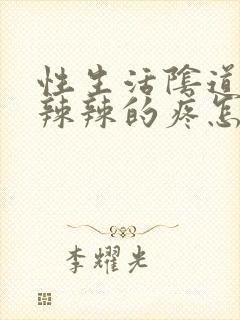 性生活陰道
辣辣的疼怎
李耀光